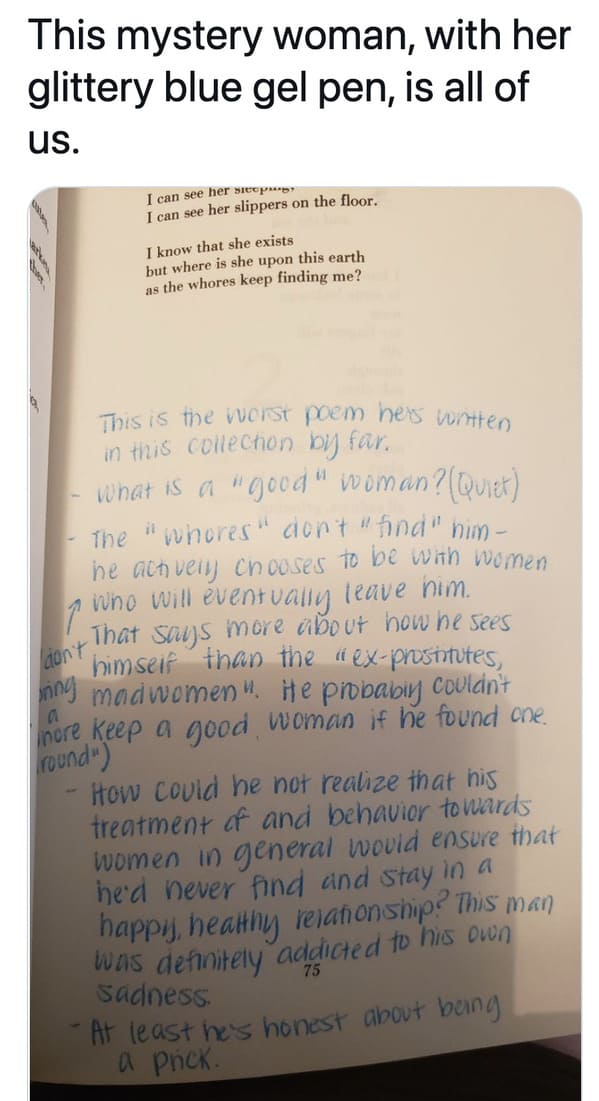 This mystery woman, with her
glittery blue gel pen, is all of
us.
I can see her
I can see her slippers on the floor.
I know that she exists
but where is she upon this earth
as the whores keep finding me?
This is the worst poem he's written
in this collection by far.
- What is a "good" woman? (Quiet)
- The "whores" don't "find" him -
he actively chooses to be with women
who will eventually leave him.
That says more about how he sees
don't himself than the "ex-prostitutes,
madwomen". He probably couldn't
a
keep a good woman if he found one.
round")
- How could he not realize that his
treatment of and behavior towards
women in general would ensure that
he'd never find and stay in a
happy, healthy relationship? This man
was definitely addicted to his own
75
sadness.
- At least he's honest about being
a prick.